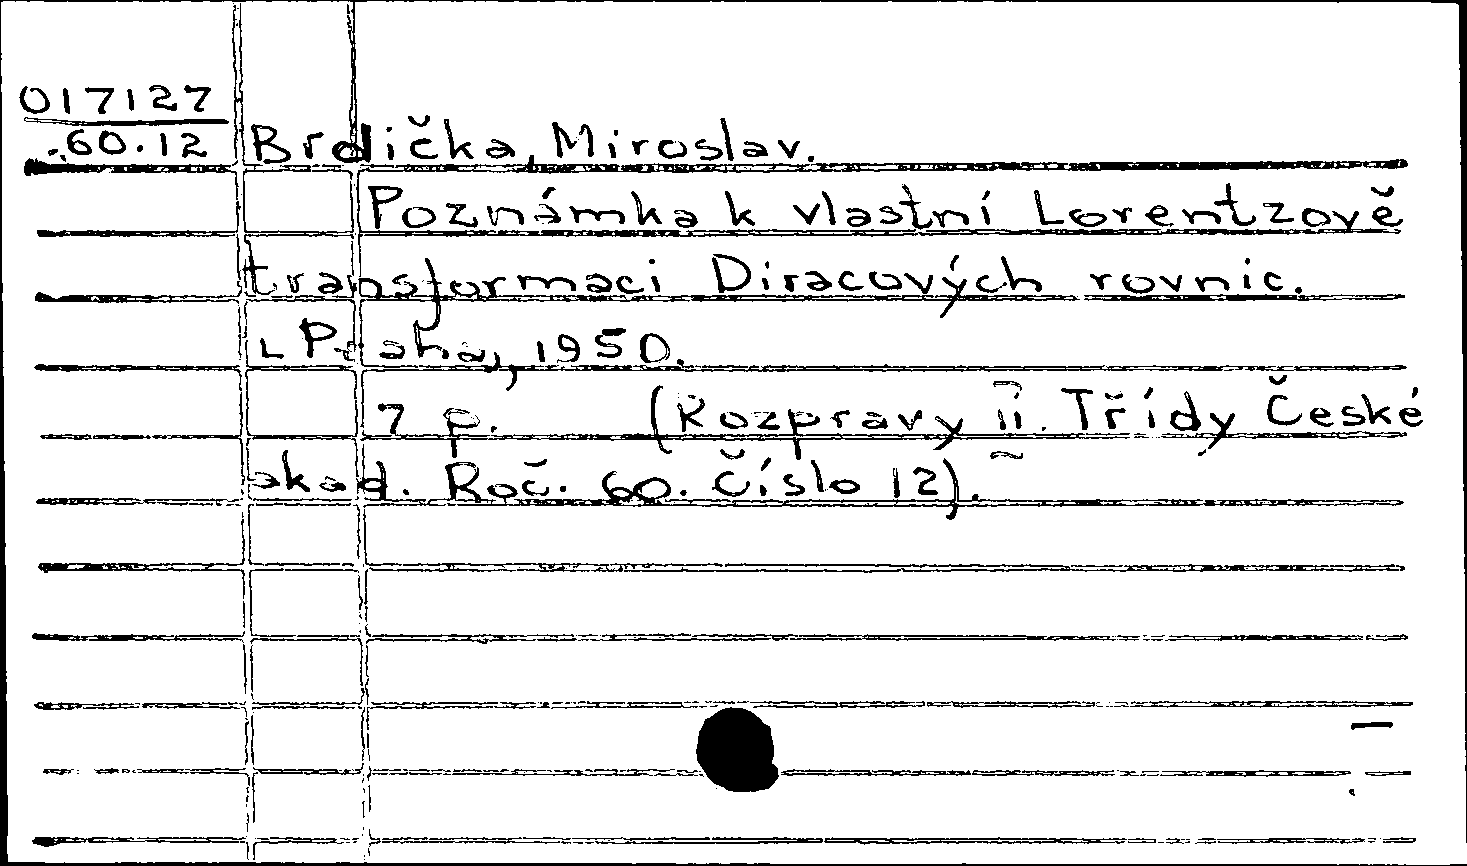 017127
60.12 Brdička, Miroslav.
Poznámka k vlastní Lorentzově
transformaci Diracových rovnic.
Praha, 1950.
7 p. (Rozpravy II. Třídy České
akad. Roč. 60. Číslo 12).